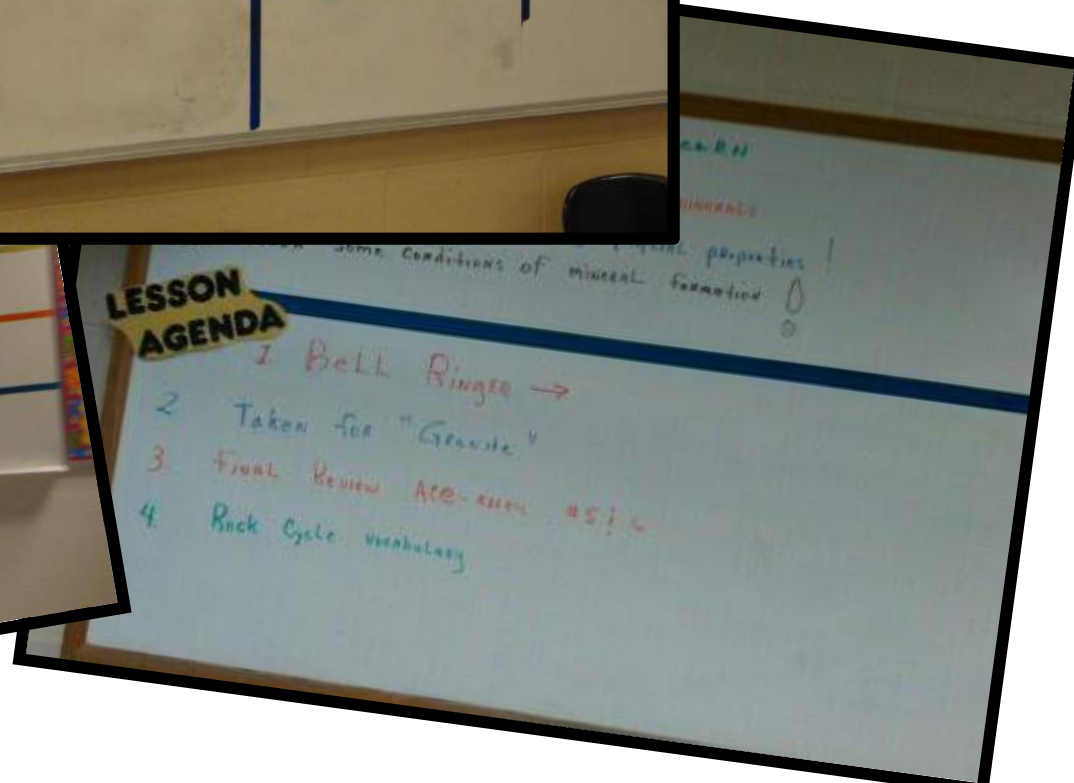 minerals
properties !
some conditions of mineral formation !
LESSON
AGENDA
1 Bell Ringer →
2 Taken for "Granite"
3. Final Review
4 Rock Cycle vocabulary